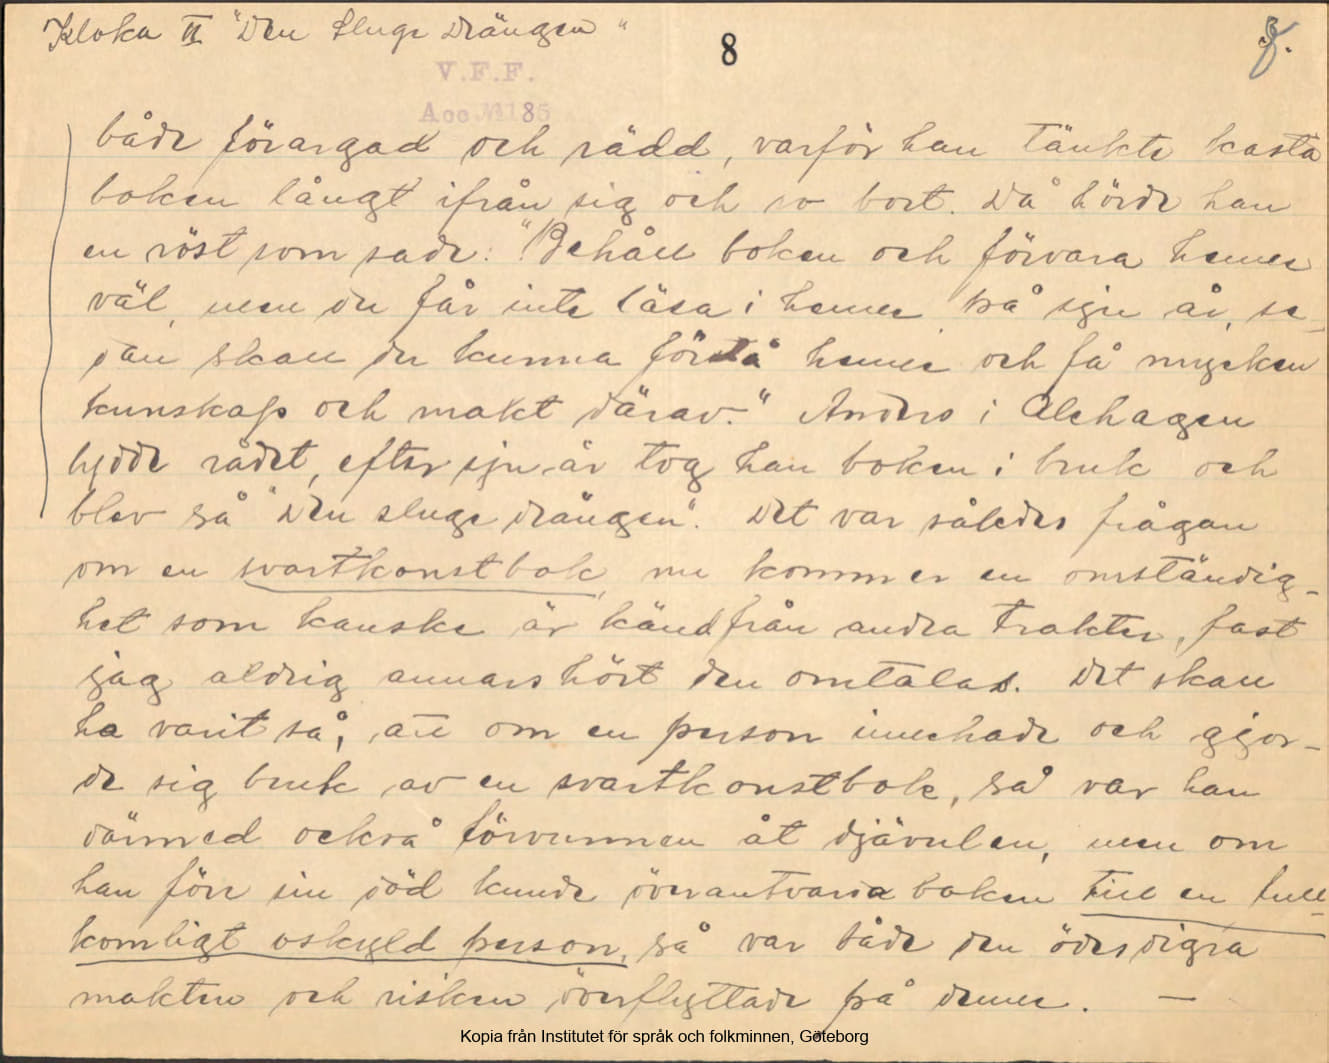 Kloka II "Den sluge drängen"
8
V.F.F.
Acc № 185
både förargad och rädd, varför han tänkte kasta
boken långt ifrån sig och so bort. Då hörde han
en röst som sade: "Behåll boken och förvara henne
väl, men du får inte läsa i henne på sju år, se-
dan skall du kunna förstå henne och få mycken
kunskap och makt därav." Anders i Alehagen
lydde rådet, efter sju år tog han boken i bruk och
blev så "Den sluge drängen". Det var således frågan
om en svartkonstbok, nu kommer en omständig-
het som kanske är känd från andra trakter, fast
jag aldrig annars hört den omtalas. Det skall
ha varit så, att om en person innehade och gjor-
de sig bruk av en svartkonstbok, så var han
därmed också förvunnen åt djävulen, men om
han före sin död kunde överantvara boken till en full-
komligt oskyld person, så var både den ödesdigra
makten och risken överflyttade på denne. —
Kopia från Institutet för språk och folkminnen, Göteborg